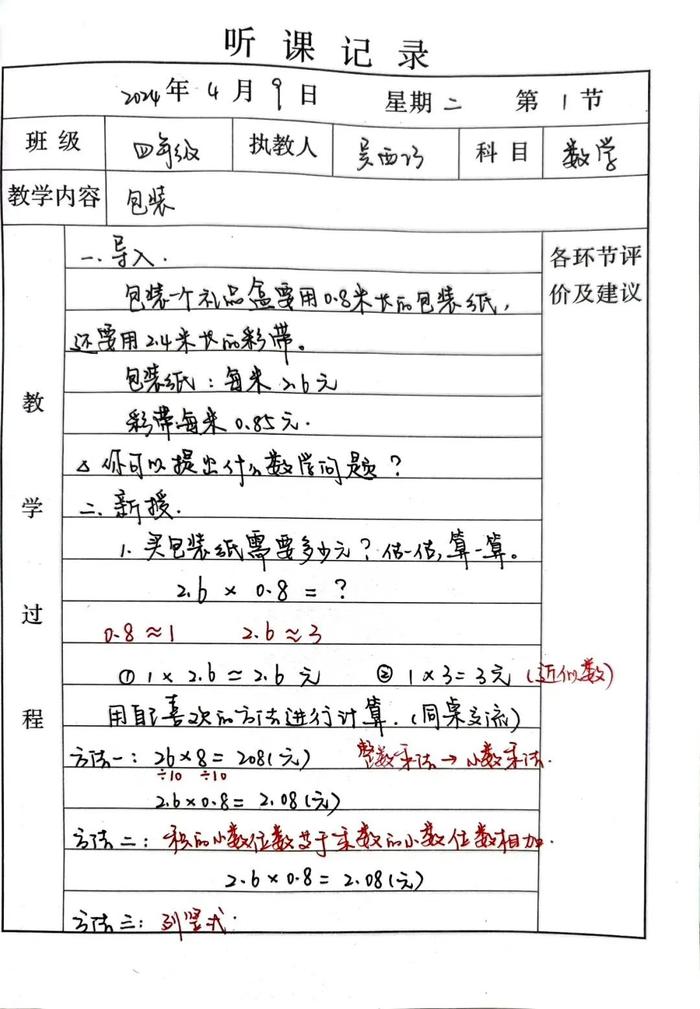 听课记录
2024年4月9日 星期二 第1节
班级 四年级 执教人 吴西 科目 数学
教学内容 包装
教学过程
各环节评价及建议
一.导入.
包装一个礼品盒要用0.8米长的包装纸,
还要用2.4米长的彩带。
包装纸:每米2.6元
彩带每米0.85元.
△你可以提出什么数学问题?
二.新授.
1.买包装纸需要多少元?估一估,算一算。
2.6×0.8=?
0.8≈1 2.6≈3
①1×2.6=2.6元 ②1×3=3元(近似数)
用自己喜欢的方法进行计算.(同桌交流)
方法一:26×8=208(元) 整数乘法→小数乘法.
÷10 ÷10
2.6×0.8=2.08(元)
方法二:积的小数位数等于乘数的小数位数相加.
2.6×0.8=2.08(元)
方法三:列竖式.